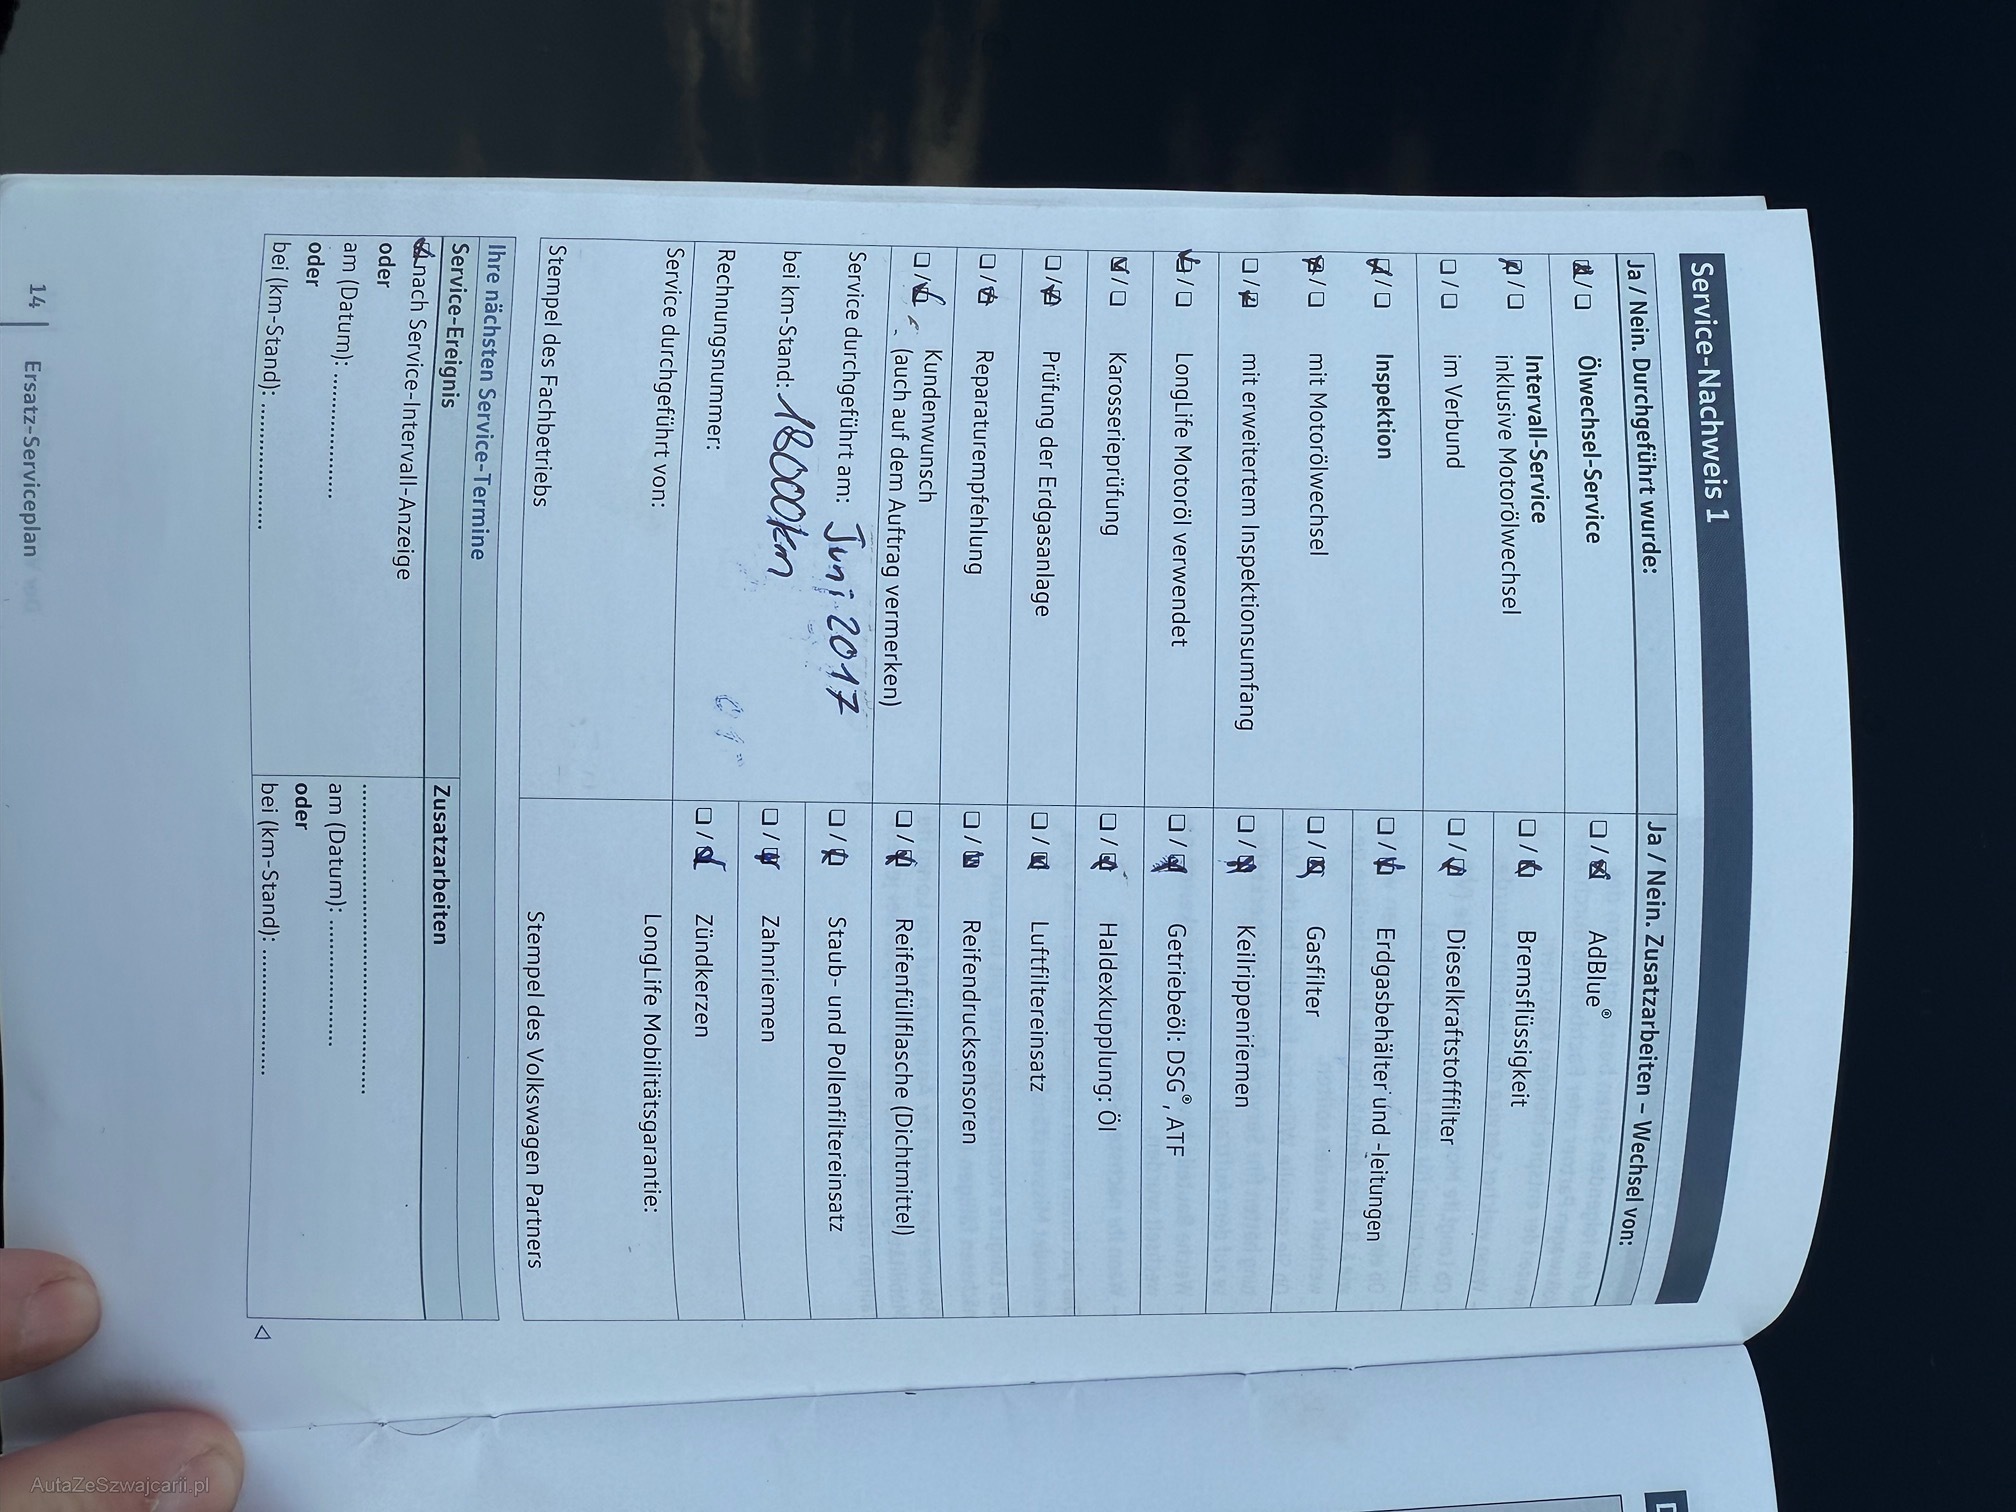 Service-Nachweis 1
Ja / Nein. Durchgeführt wurde:
☒ / ☐ Ölwechsel-Service
☒ / ☐ Intervall-Service
inklusive Motorölwechsel
☐ / ☐ im Verbund
☒ / ☐ Inspektion
☒ / ☐ mit Motorölwechsel
☐ / ☒ mit erweitertem Inspektionsumfang
☒ / ☐ LongLife Motoröl verwendet
☒ / ☐ Karosserieprüfung
☐ / ☒ Prüfung der Erdgasanlage
☐ / ☒ Reparaturempfehlung
☐ / ☒ Kundenwunsch
(auch auf dem Auftrag vermerken)
Service durchgeführt am: Juni 2017
bei km-Stand: 18000km
Rechnungsnummer:
Service durchgeführt von:
Stempel des Fachbetriebs
Ja / Nein. Zusatzarbeiten – Wechsel von:
☐ / ☒ AdBlue®
☐ / ☒ Bremsflüssigkeit
☐ / ☒ Dieselkraftstofffilter
☐ / ☒ Erdgasbehälter und -leitungen
☐ / ☒ Gasfilter
☐ / ☒ Keilrippenriemen
☐ / ☒ Getriebeöl: DSG®, ATF
☐ / ☒ Haldexkupplung: Öl
☐ / ☒ Luftfiltereinsatz
☐ / ☒ Reifendrucksensoren
☐ / ☒ Reifenfüllflasche (Dichtmittel)
☐ / ☒ Staub- und Pollenfiltereinsatz
☐ / ☒ Zahnriemen
☐ / ☒ Zündkerzen
LongLife Mobilitätsgarantie:
Stempel des Volkswagen Partners
Ihre nächsten Service-Termine
Service-Ereignis
☒ nach Service-Intervall-Anzeige
oder
am (Datum): ....................
oder
bei (km-Stand): ....................
Zusatzarbeiten
..................................................
am (Datum): ....................
oder
bei (km-Stand): ....................
14 Ersatz-Serviceplan
AutaZeSzwajcarii.pl